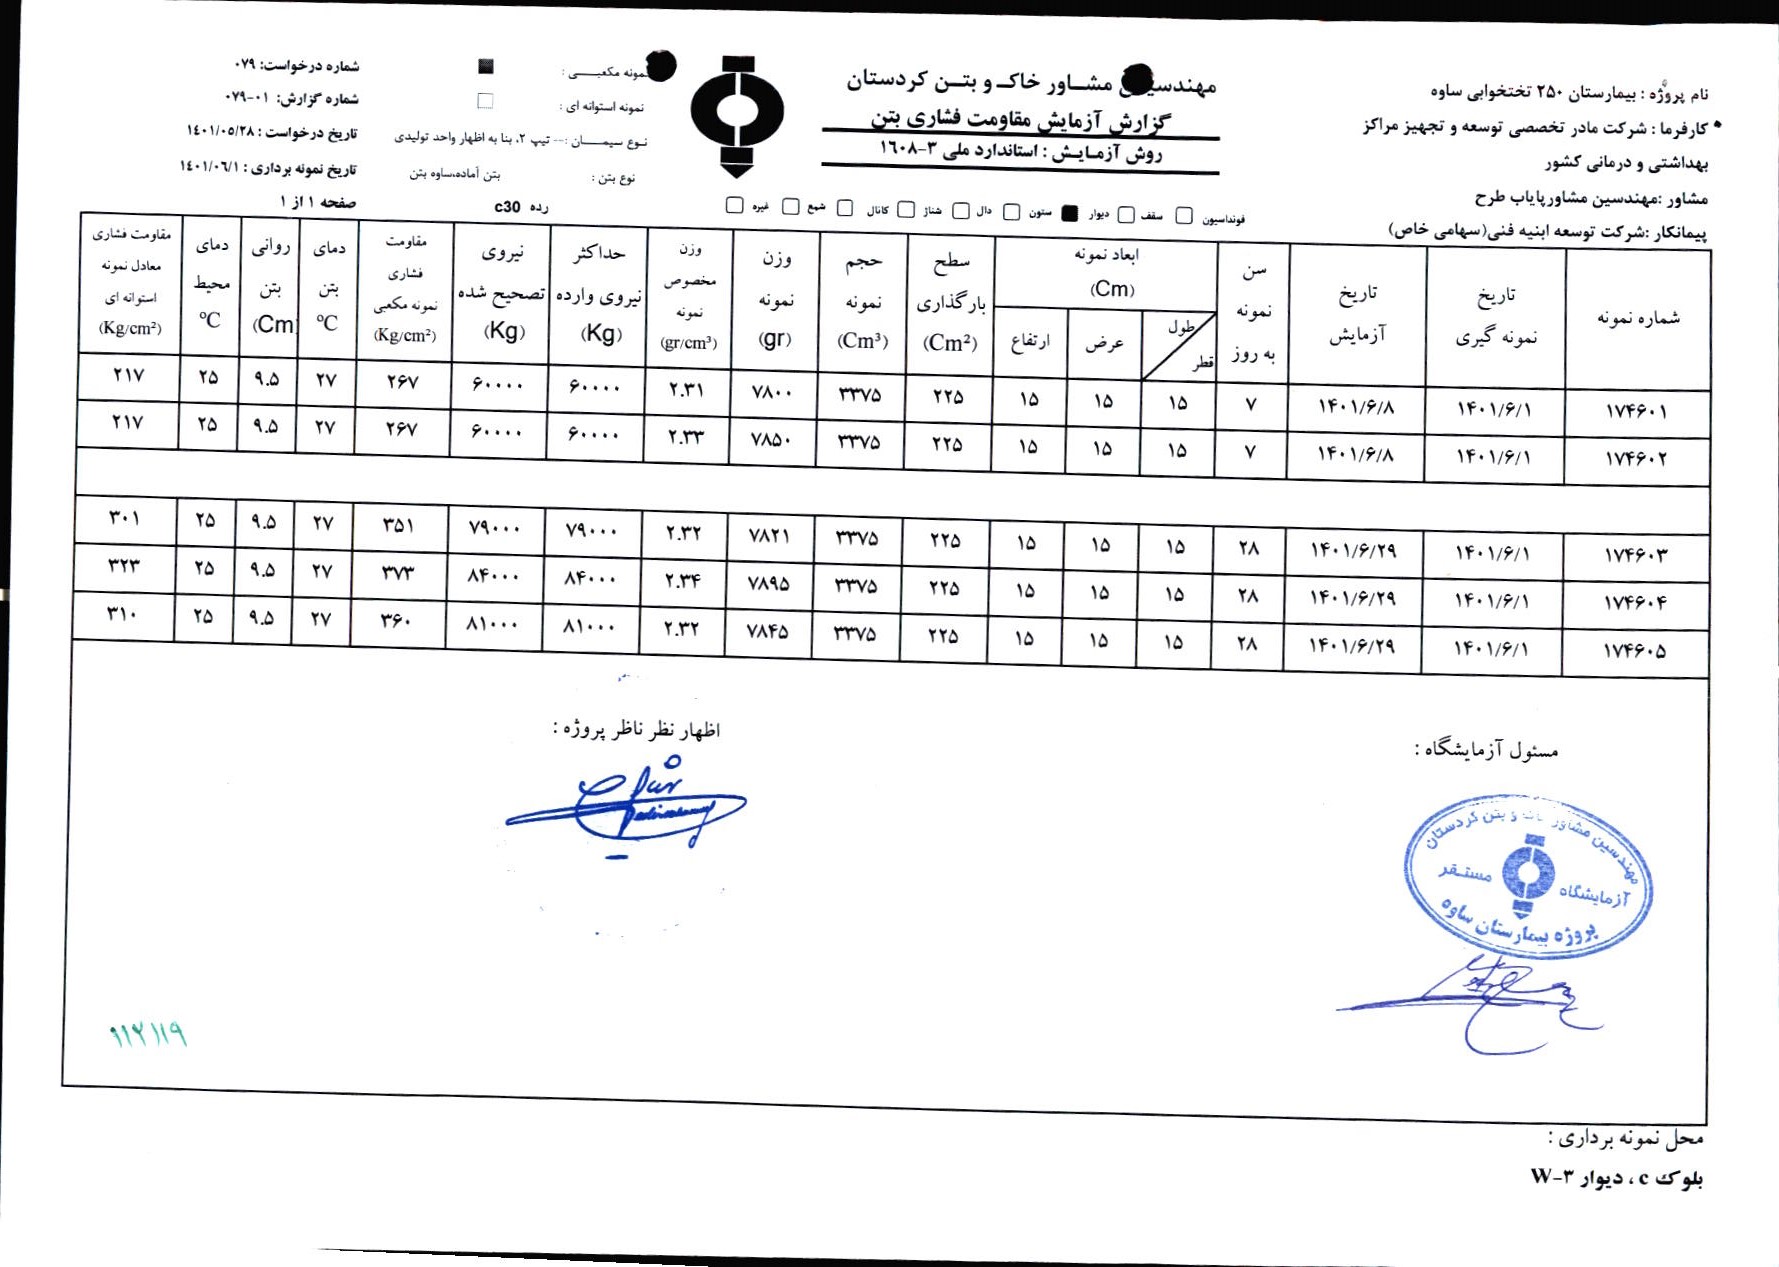 نام پروژه : بیمارستان ۲۵۰ تختخوابی ساوه
کارفرما : شرکت مادر تخصصی توسعه و تجهیز مراکز
بهداشتی و درمانی کشور
مشاور :مهندسین مشاورپایاب طرح
پیمانکار :شرکت توسعه ابنیه فنی(سهامی خاص)
مهندسین مشاور خاک و بتن کردستان
گزارش آزمایش مقاومت فشاری بتن
روش آزمایش : استاندارد ملی ۳-۱۶۰۸
نمونه مکعبی :
نمونه استوانه ای :
نوع سیمان :-- تیپ ۲، بنا به اظهار واحد تولیدی
نوع بتن : بتن آماده،ساوه بتن
رده c30
شماره درخواست: ۰۷۹
شماره گزارش: ۰۱-۰۷۹
تاریخ درخواست : ۱۴۰۱/۰۵/۲۸
تاریخ نمونه برداری : ۱۴۰۱/۰۶/۱
صفحه ۱ از ۱
فونداسیون سقف دیوار ستون دال شناژ کانال شمع غیره
شماره نمونه
تاریخ نمونه گیری
تاریخ آزمایش
سن نمونه به روز
ابعاد نمونه (Cm)
طول قطر
عرض
ارتفاع
سطح بارگذاری (Cm²)
حجم نمونه (Cm³)
وزن نمونه (gr)
وزن مخصوص نمونه (gr/cm³)
حداکثر نیروی وارده (Kg)
نیروی تصحیح شده (Kg)
مقاومت فشاری نمونه مکعبی (Kg/cm²)
دمای بتن ºC
روانی بتن (Cm
دمای محیط ºC
مقاومت فشاری معادل نمونه استوانه ای (Kg/cm²)
۱۷۴۶۰۱ ۱۴۰۱/۶/۱ ۱۴۰۱/۶/۸ ۷ ۱۵ ۱۵ ۱۵ ۲۲۵ ۳۳۷۵ ۷۸۰۰ ۲.۳۱ ۶۰۰۰۰ ۶۰۰۰۰ ۲۶۷ ۲۷ ۹.۵ ۲۵ ۲۱۷
۱۷۴۶۰۲ ۱۴۰۱/۶/۱ ۱۴۰۱/۶/۸ ۷ ۱۵ ۱۵ ۱۵ ۲۲۵ ۳۳۷۵ ۷۸۵۰ ۲.۳۳ ۶۰۰۰۰ ۶۰۰۰۰ ۲۶۷ ۲۷ ۹.۵ ۲۵ ۲۱۷
۱۷۴۶۰۳ ۱۴۰۱/۶/۱ ۱۴۰۱/۶/۲۹ ۲۸ ۱۵ ۱۵ ۱۵ ۲۲۵ ۳۳۷۵ ۷۸۲۱ ۲.۳۲ ۷۹۰۰۰ ۷۹۰۰۰ ۳۵۱ ۲۷ ۹.۵ ۲۵ ۳۰۱
۱۷۴۶۰۴ ۱۴۰۱/۶/۱ ۱۴۰۱/۶/۲۹ ۲۸ ۱۵ ۱۵ ۱۵ ۲۲۵ ۳۳۷۵ ۷۸۹۵ ۲.۳۴ ۸۴۰۰۰ ۸۴۰۰۰ ۳۷۳ ۲۷ ۹.۵ ۲۵ ۳۲۳
۱۷۴۶۰۵ ۱۴۰۱/۶/۱ ۱۴۰۱/۶/۲۹ ۲۸ ۱۵ ۱۵ ۱۵ ۲۲۵ ۳۳۷۵ ۷۸۴۵ ۲.۳۲ ۸۱۰۰۰ ۸۱۰۰۰ ۳۶۰ ۲۷ ۹.۵ ۲۵ ۳۱۰
مسئول آزمایشگاه :
اظهار نظر ناظر پروژه :
مهندسین مشاور خاک و بتن کردستان
آزمایشگاه مستقر
پروژه بیمارستان ساوه
محل نمونه برداری :
بلوک c ، دیوار W-۳